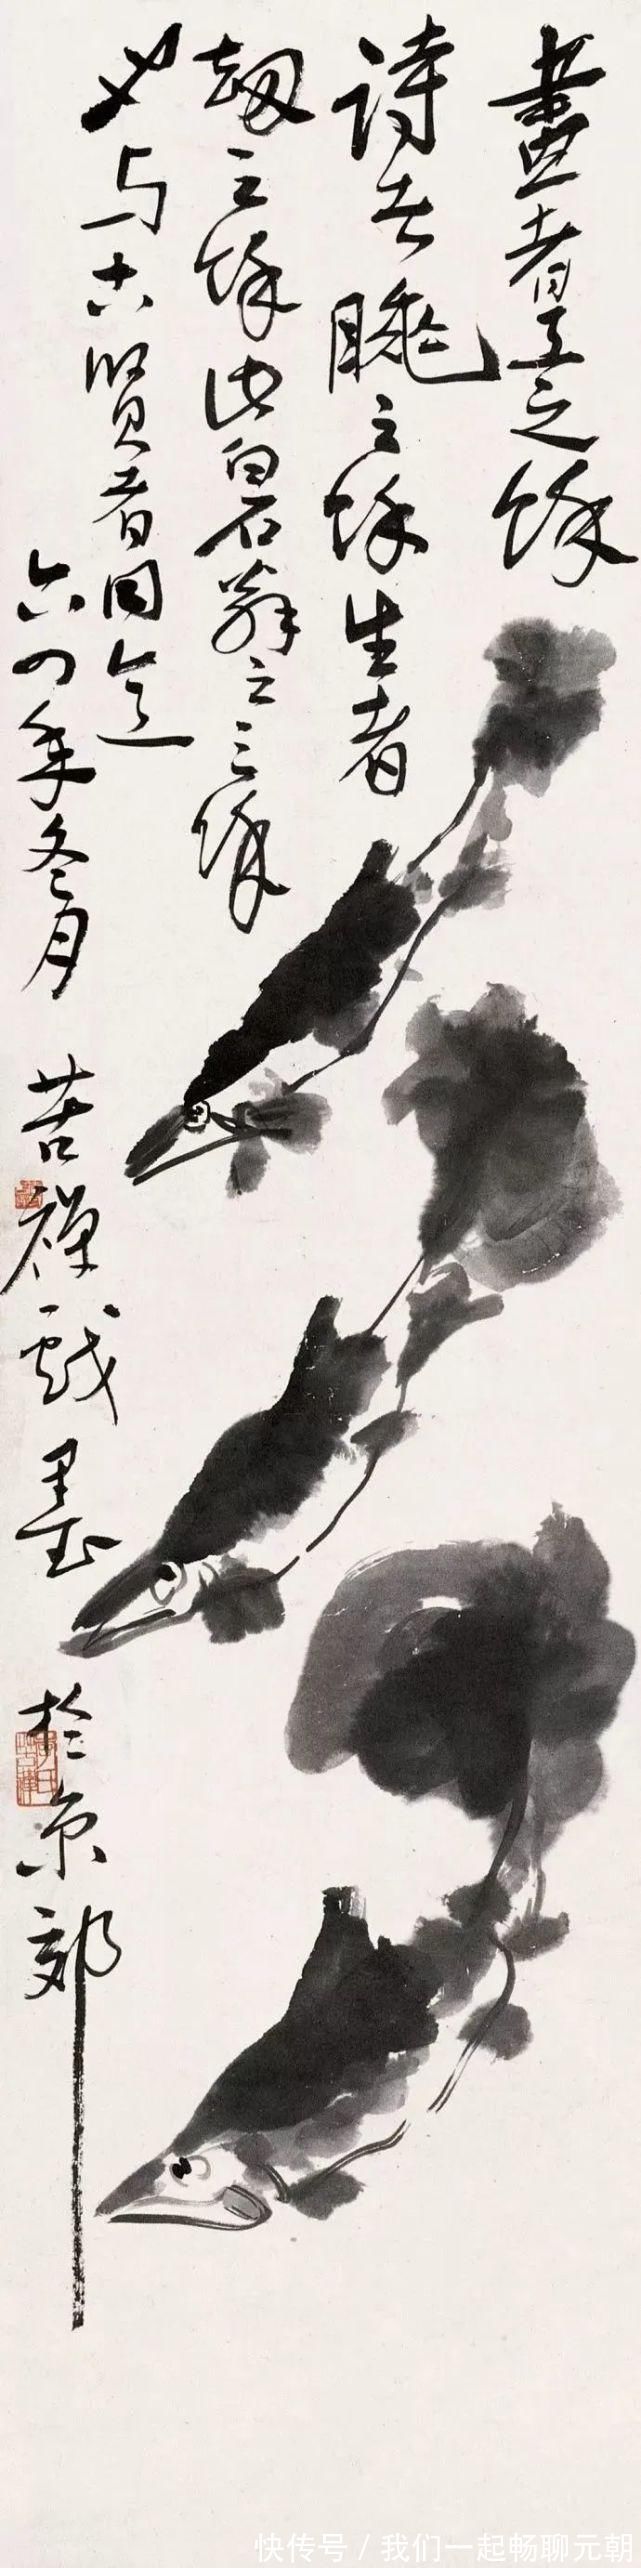 畫者工之餘
詩者睡之餘生者
劫之餘此白石翁之三餘
与古賢者同
六四年冬月 苦禪戲墨 於京郊
快传号 / 我们一起畅聊元朝